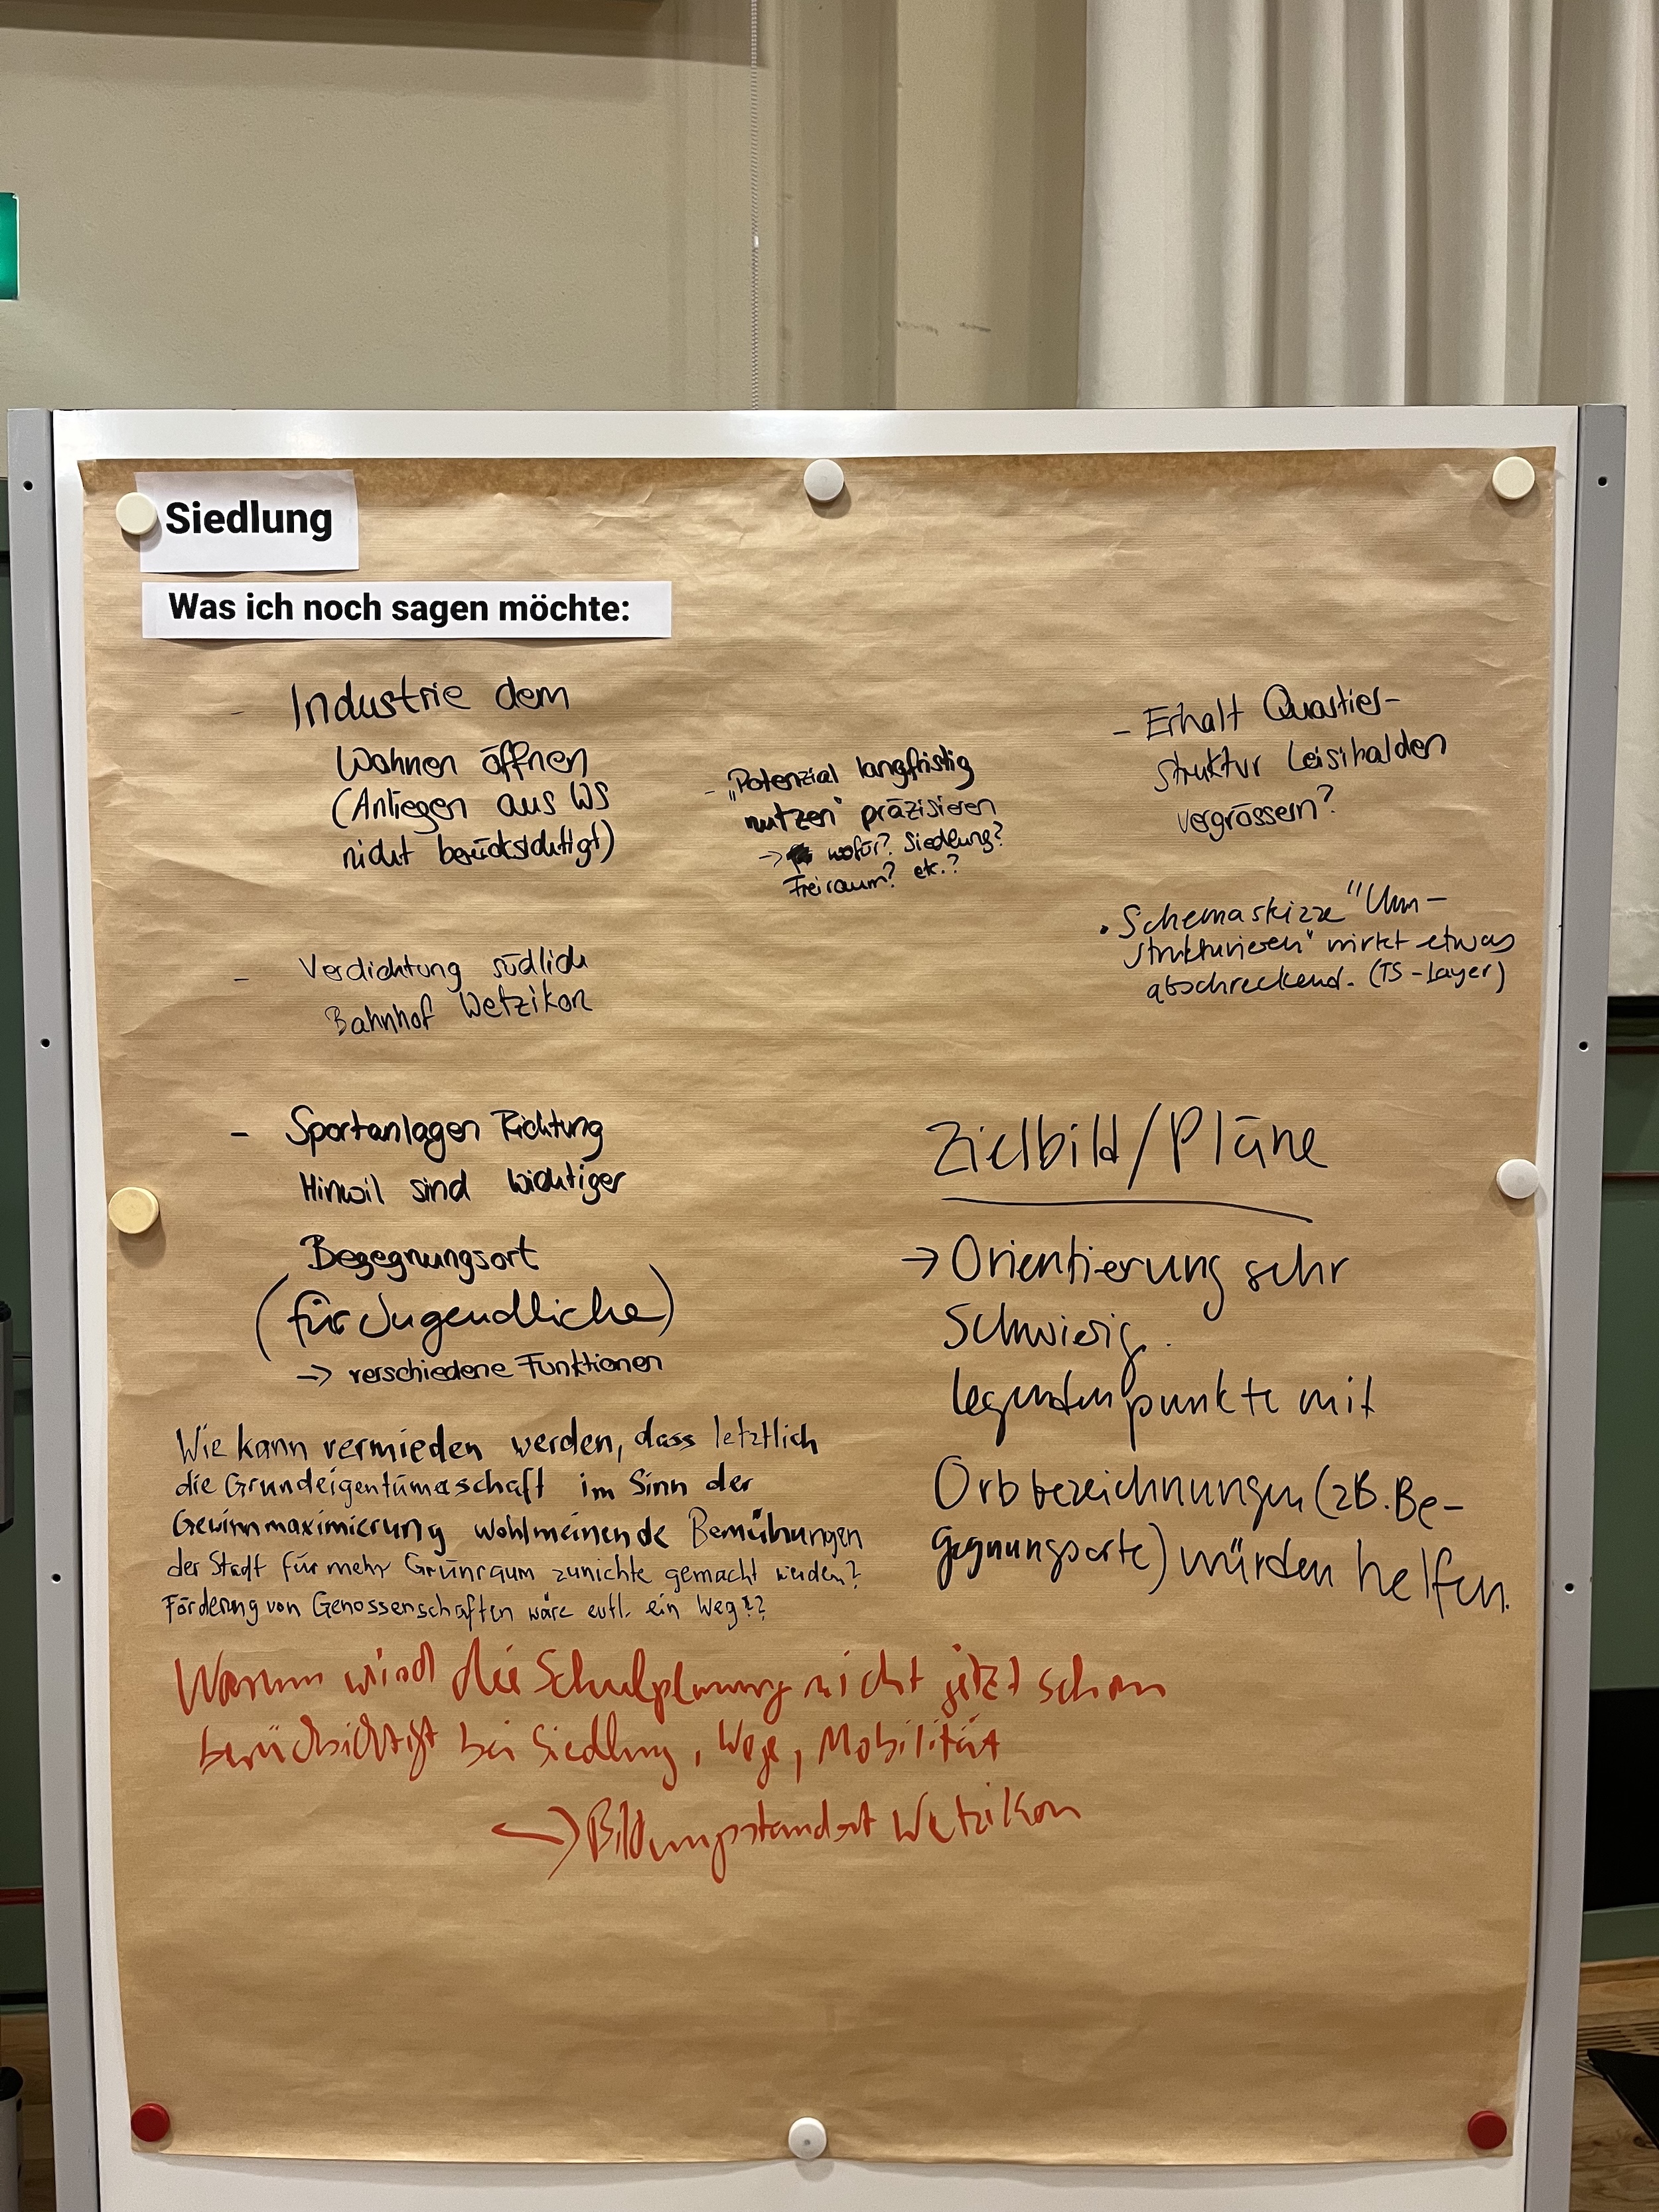 Siedlung
Was ich noch sagen möchte:
- Industrie dem
Wohnen öffnen
(Anliegen aus WS
nicht berücksichtigt)
- Verdichtung südlich
Bahnhof Wetzikon
- Sportanlagen Richtung
Hinwil sind wichtiger
Begegnungsort
(für Jugendliche)
→ verschiedene Funktionen
Wie kann vermieden werden, dass letztlich
die Grundeigentümerschaft im Sinn der
Gewinnmaximierung wohlmeinende Bemühungen
der Stadt für mehr Grünraum zunichte gemacht werden?
Förderung von Genossenschaften wäre evtl. ein Weg!?
- „Potenzial langfristig
nutzen" präzisieren
→ wofür? Siedlung?
Freiraum? etc.?
- Erhalt Quartier-
struktur Leisihalden
vergrössern?
• Schemaskizze "Um-
strukturieren" wirkt etwas
abschreckend. (TS-Layer)
Zielbild/Pläne
→ Orientierung sehr
Schwierig.
legendenpunkte mit
Ortsbezeichnungen (zB. Be-
gegnungsorte) würden helfen.
Warum wird die Schulplanung nicht jetzt schon
berücksichtigt bei Siedlung, Wege, Mobilität
↔ Bildungsstandort Wetzikon